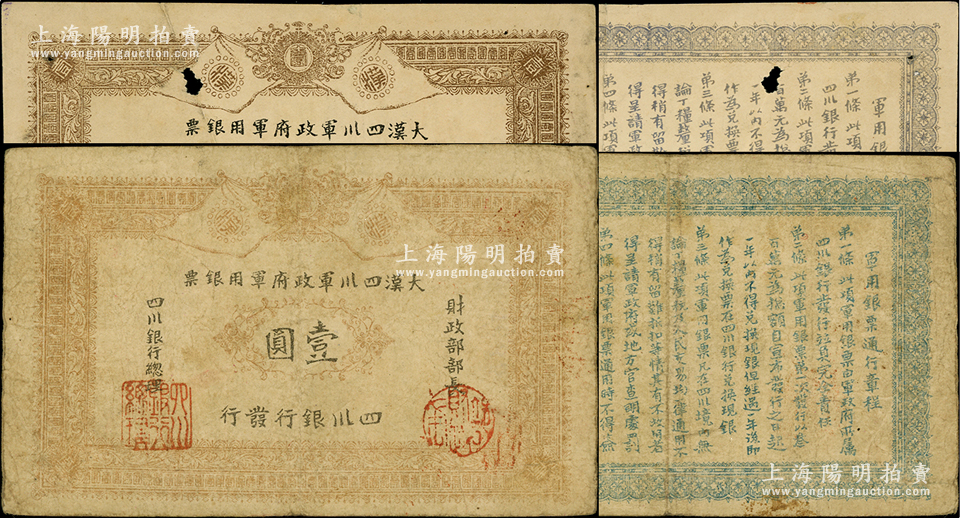 上海陽明拍賣
www.yangmingauction.com
壹
漢
大漢四川軍政府軍用銀票
軍用銀
第一條 此項
四川銀行發
第二條 此項
百萬元為總
一年以內不得
作為兌換票
第三條 此項軍
論丁糧釐稅
得稍有留難
得呈請軍政
第四條 此項軍
上海陽明拍賣
www.yangmingauction.com
大漢四川軍政府軍用銀票
財政部部長
壹圓
四川銀行總理
四川銀行發行
上海陽明拍賣
www.yangmingauction.com
軍用銀票通行章程
第一條 此項軍用銀票由軍政府所屬
四川銀行發行並負完全責任
第二條 此項軍用銀票第一次發行以叁
百萬元為總額自宣布發行之日起
一年以內不得兌換現銀但經過一年後即
作為兌換票在四川銀行兌換現銀
第三條 此項軍用銀票凡在四川境內無
論丁糧釐稅及人民交易均一律通用不
得稍有留難折扣等情其有不收用者
得呈請軍政府或地方官查明處罰
第四條 此項軍用銀票通用時不得
上海陽明拍賣
www.yangmingauction.com